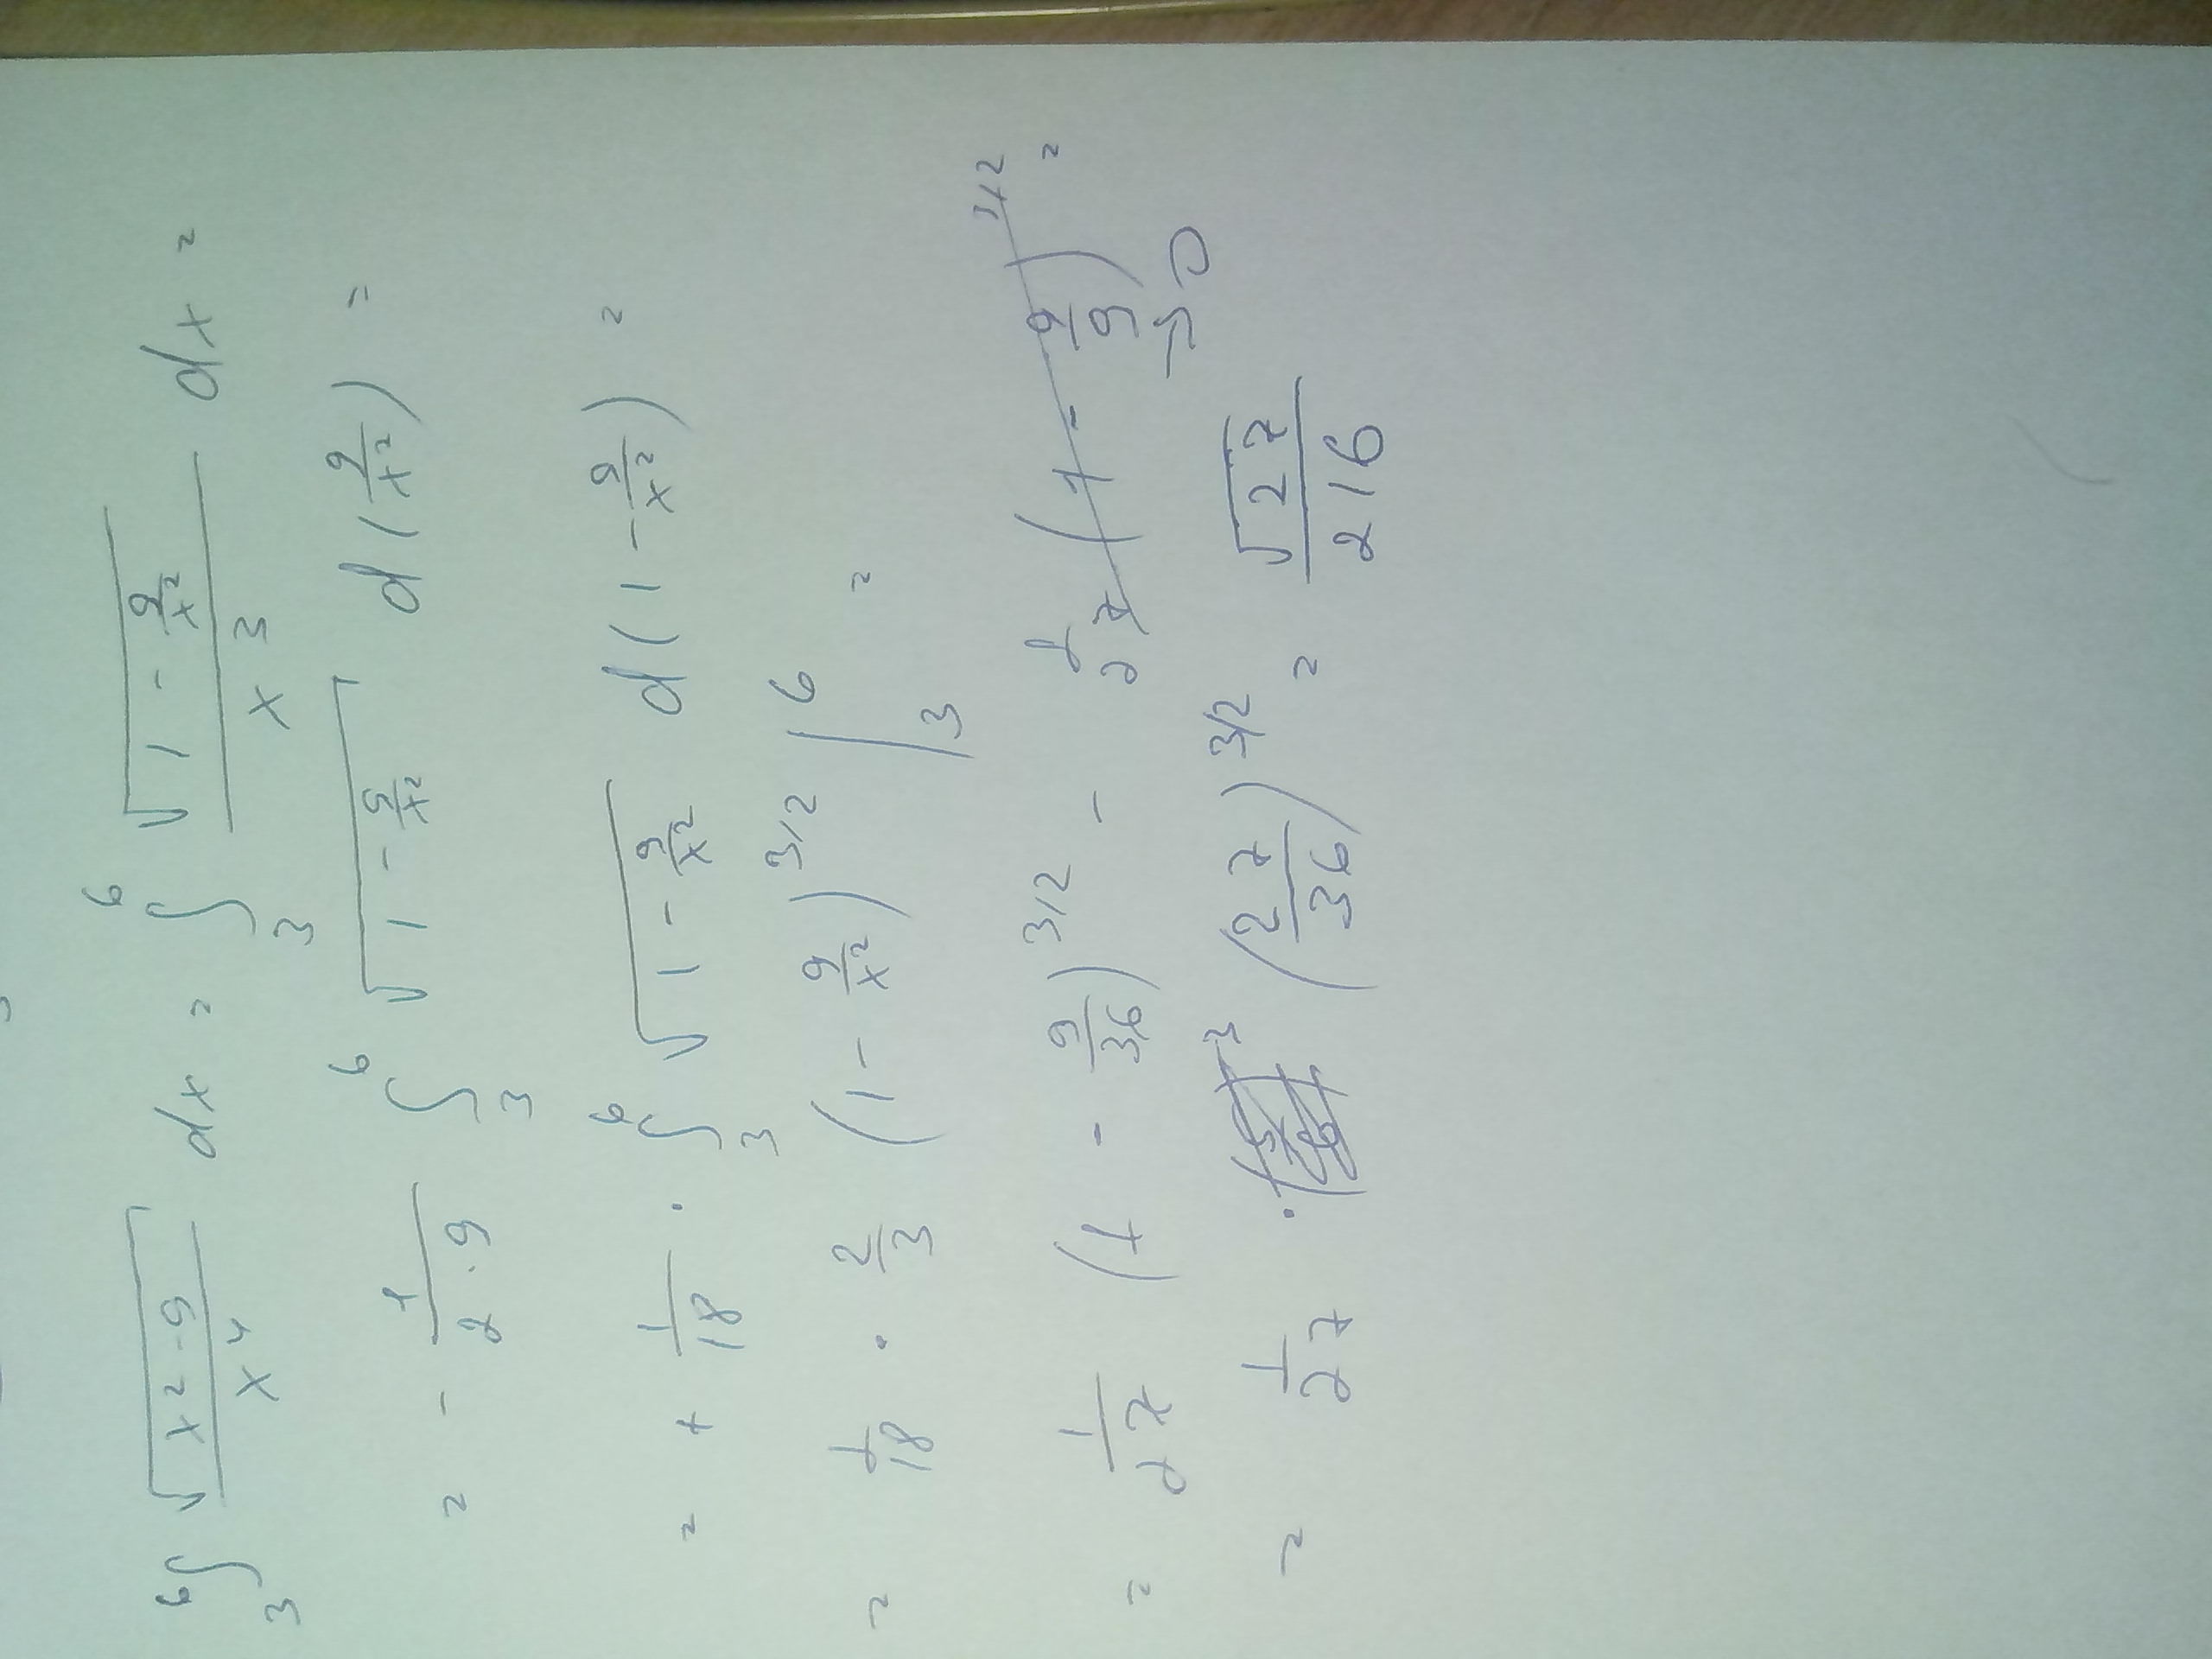 ∫₃⁶ √(x²-9)/x⁴ dx = ∫₃⁶ √(1 - 9/x²)/x³ dx =
= - 1/(2·9) ∫₃⁶ √(1 - 9/x²) d(9/x²) =
= + 1/18 · ∫₃⁶ √(1 - 9/x²) d(1 - 9/x²) =
= 1/18 · 2/3 (1 - 9/x²)^3/2 |₃⁶ =
= 1/27 (1 - 9/36)^3/2 - 1/27 (1 - 9/9)^3/2 =
→ 0
= 1/27 · (27/36)^3/2 = √27/216